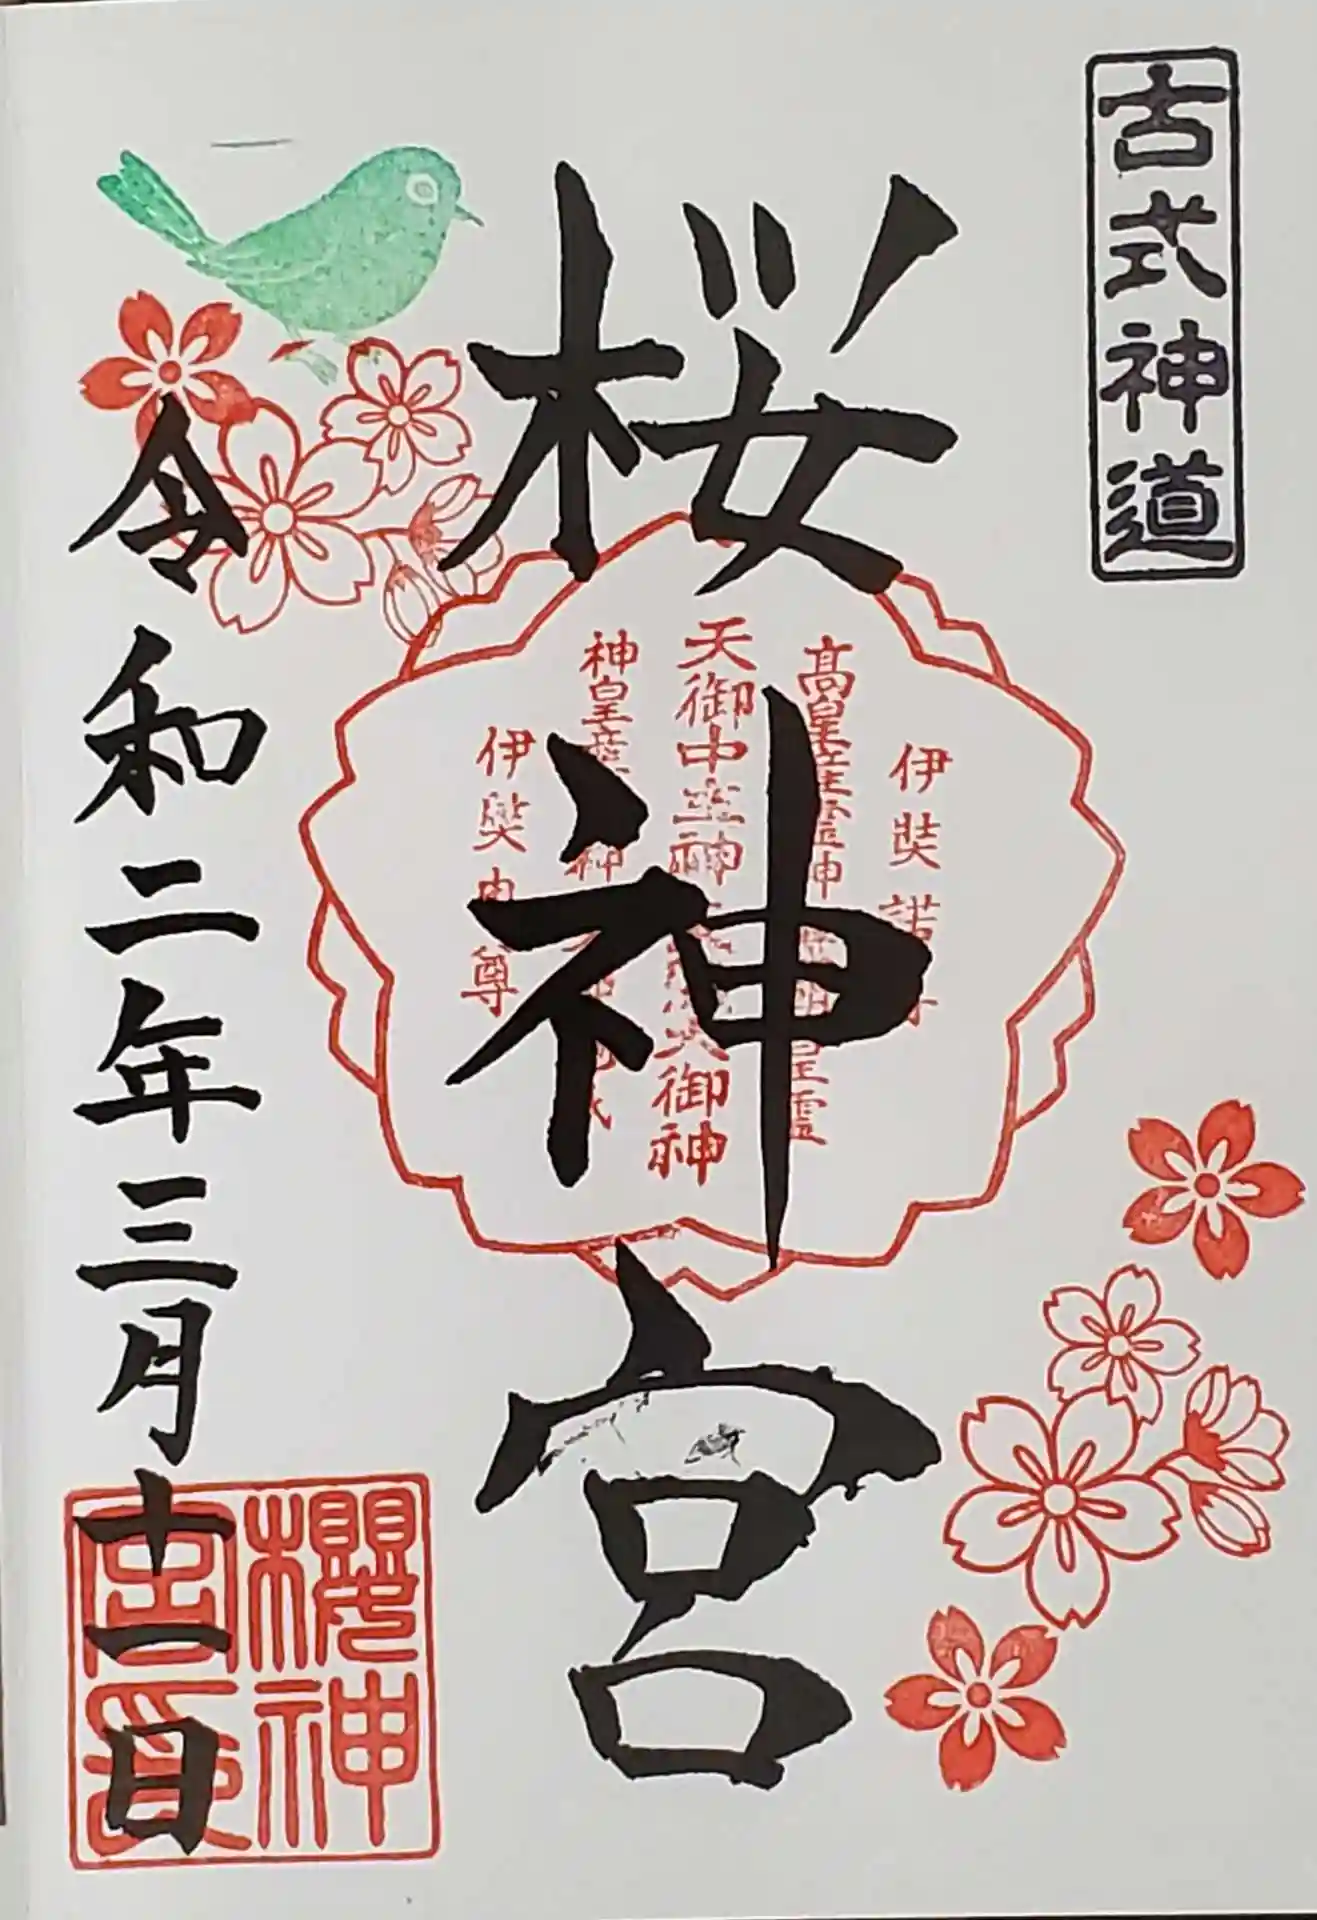 古式神道
桜神宮
伊弉諾
高皇産霊神 皇霊
天御中主神 大御神
神皇産 神
伊弉冉尊
令和二年三月十一日
櫻神
宮印